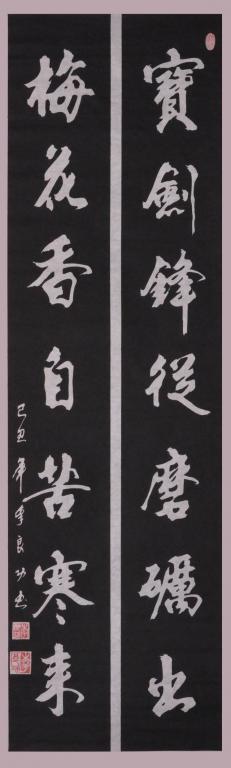 寶劍鋒從磨礪出
梅花香自苦寒來
己丑年李良功書